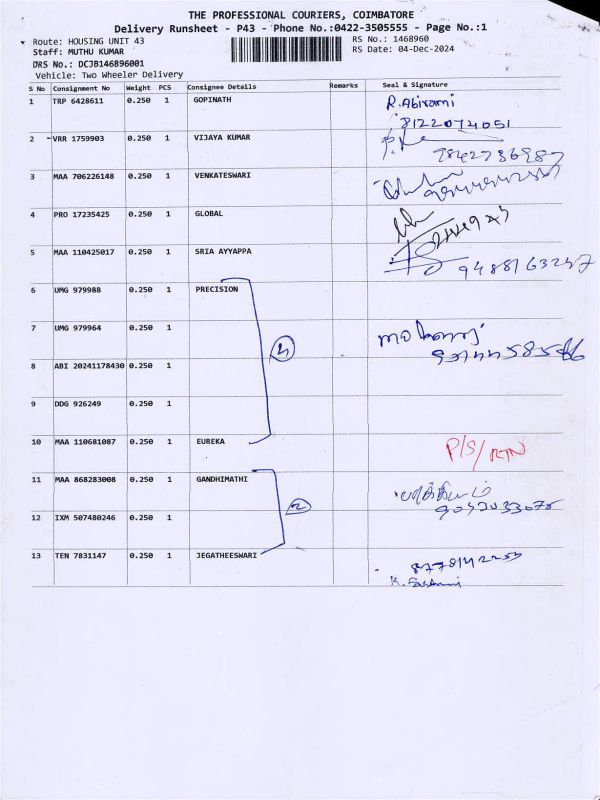 THE PROFESSIONAL COURIERS, COIMBATORE
Delivery Runsheet - P43 - Phone No.:0422-3505555 - Page No.:1
Route: HOUSING UNIT 43
Staff: MUTHU KUMAR
DRS No.: DCJB146896001
Vehicle: Two Wheeler Delivery
RS No.: 1468960
RS Date: 04-Dec-2024
S No Consignment No Weight PCS Consignee Details Remarks Seal & Signature
1 TRP 6428611 0.250 1 GOPINATH R.Abirami
8122074051
2 VRR 1759903 0.250 1 VIJAYA KUMAR
9842736987
3 MAA 706226148 0.250 1 VENKATESWARI
4 PRO 17235425 0.250 1 GLOBAL
5 MAA 110425017 0.250 1 SRIA AYYAPPA
9488163247
6 UMG 979988 0.250 1 PRECISION
7 UMG 979964 0.250 1
8 ABI 20241178430 0.250 1
9 DDG 926249 0.250 1
10 MAA 110681087 0.250 1 EUREKA P/S/RTN
11 MAA 868283008 0.250 1 GANDHIMATHI
12 IXM 507480246 0.250 1
2
13 TEN 7831147 0.250 1 JEGATHEESWARI